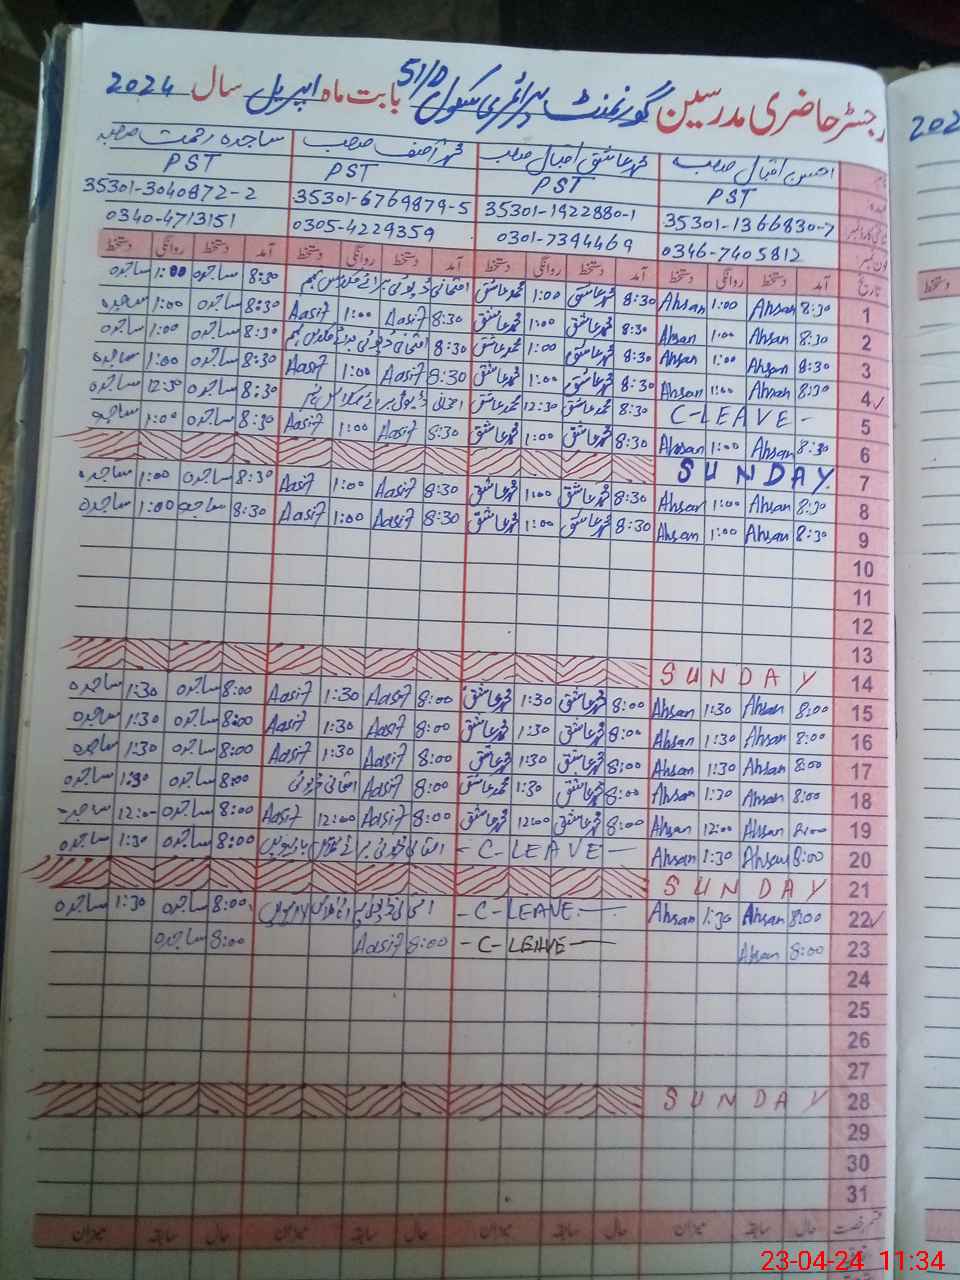 رجسٹر حاضری مدرسین گورنمنٹ پرائمری سکول 51/D بابت ماہ اپریل سال 2024
احسن اقبال صاحب محمد عاشق اقبال صاحب محمد آصف صاحب ساجدہ رحمت صاحبہ
PST PST PST PST
35301-1366830-7 35301-1922880-1 35301-6769879-5 35301-3040872-2
0346-7405812 0301-7394469 0305-4229359 0340-4713151
تاریخ آمد دستخط روانگی دستخط آمد دستخط روانگی دستخط آمد دستخط روانگی دستخط آمد دستخط روانگی دستخط
1 8:30 Ahsan 1:00 Ahsan 8:30 محمد عاشق 1:00 محمد عاشق امتحانی ڈیوٹی 8:30 ساجدہ 1:00 ساجدہ
2 8:30 Ahsan 1:00 Ahsan 8:30 محمد عاشق 1:00 محمد عاشق 8:30 Aasif 1:00 Aasif 8:30 ساجدہ 1:00 ساجدہ
3 8:30 Ahsan 1:00 Ahsan 8:30 محمد عاشق 1:00 محمد عاشق 8:30 امتحانی ڈیوٹی 8:30 ساجدہ 1:00 ساجدہ
4 8:30 Ahsan 1:00 Ahsan 8:30 محمد عاشق 1:00 محمد عاشق 8:30 Aasif 1:00 Aasif 8:30 ساجدہ 1:00 ساجدہ
5 C-LEAVE- 8:30 محمد عاشق 12:30 محمد عاشق امتحانی ڈیوٹی 8:30 ساجدہ 12:30 ساجدہ
6 8:30 Ahsan 1:00 Ahsan 8:30 محمد عاشق 1:00 محمد عاشق 8:30 Aasif 1:00 Aasif 8:30 ساجدہ 1:00 ساجدہ
7 SUNDAY
8 8:30 Ahsan 1:00 Ahsan 8:30 محمد عاشق 1:00 محمد عاشق 8:30 Aasif 1:00 Aasif 8:30 ساجدہ 1:00 ساجدہ
9 8:30 Ahsan 1:00 Ahsan 8:30 محمد عاشق 1:00 محمد عاشق 8:30 Aasif 1:00 Aasif 8:30 ساجدہ 1:00 ساجدہ
10
11
12
13
14 SUNDAY
15 8:00 Ahsan 1:30 Ahsan 8:00 محمد عاشق 1:30 محمد عاشق 8:00 Aasif 1:30 Aasif 8:00 ساجدہ 1:30 ساجدہ
16 8:00 Ahsan 1:30 Ahsan 8:00 محمد عاشق 1:30 محمد عاشق 8:00 Aasif 1:30 Aasif 8:00 ساجدہ 1:30 ساجدہ
17 8:00 Ahsan 1:30 Ahsan 8:00 محمد عاشق 1:30 محمد عاشق 8:00 Aasif 1:30 Aasif 8:00 ساجدہ 1:30 ساجدہ
18 8:00 Ahsan 1:30 Ahsan 8:00 محمد عاشق 1:30 محمد عاشق 8:00 Aasif امتحانی ڈیوٹی 8:00 ساجدہ 1:30 ساجدہ
19 8:00 Ahsan 12:00 Ahsan 8:00 محمد عاشق 12:00 محمد عاشق 8:00 Aasif 12:00 Aasif 8:00 ساجدہ 12:00 ساجدہ
20 8:00 Ahsan 1:30 Ahsan -C-LEAVE- امتحانی ڈیوٹی 8:00 ساجدہ 1:30 ساجدہ
21 SUNDAY
22 8:00 Ahsan 1:30 Ahsan -C-LEAVE- امتحانی ڈیوٹی 8:00 ساجدہ 1:30 ساجدہ
23 8:00 Ahsan -C-LEAVE- 8:00 Aasif 8:00 ساجدہ
24
25
26
27
28 SUNDAY
29
30
31
قسم رخصت حال سابقہ میزان حال سابقہ میزان حال سابقہ میزان حال سابقہ میزان
202
دستخط
23-04-24 11:34